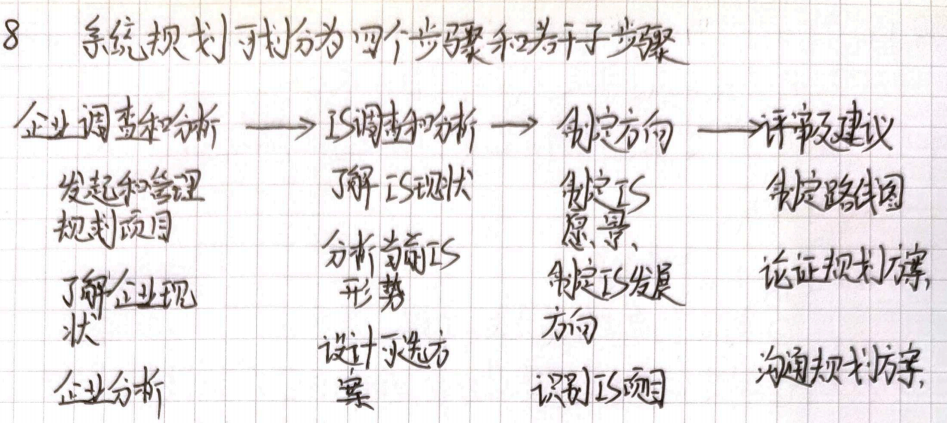 8 系统规划可划分为四个步骤和若干子步骤
企业调查和分析 → IS调查和分析 → 制定方向 → 评审及建议
发起和管理
规划项目
了解企业现
状
企业分析
了解IS现状
分析当前IS
形势
设计可选方
案
制定IS
愿景
制定IS发展
方向
识别IS项目
制定路线图
论证规划方案
沟通规划方案